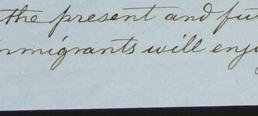 the present and fu
mmigrants will enjo